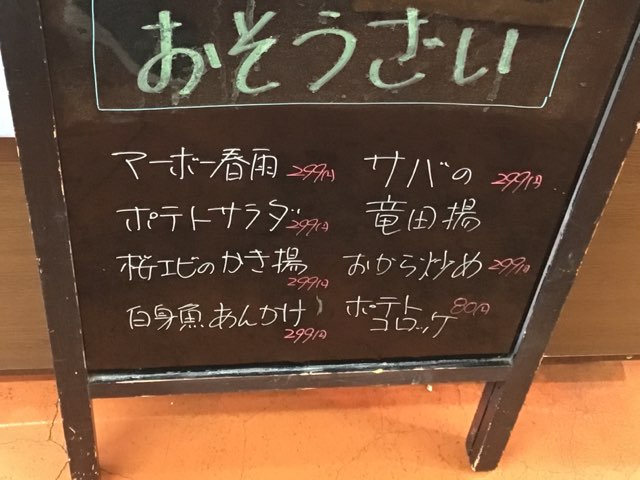 おそうざい
マーボー春雨 299円
ポテトサラダ 299円
桜エビのかき揚
299円
白身魚あんかけ
299円
サバの 299円
竜田揚
おから炒め 299円
ポテト 80円
コロッケ